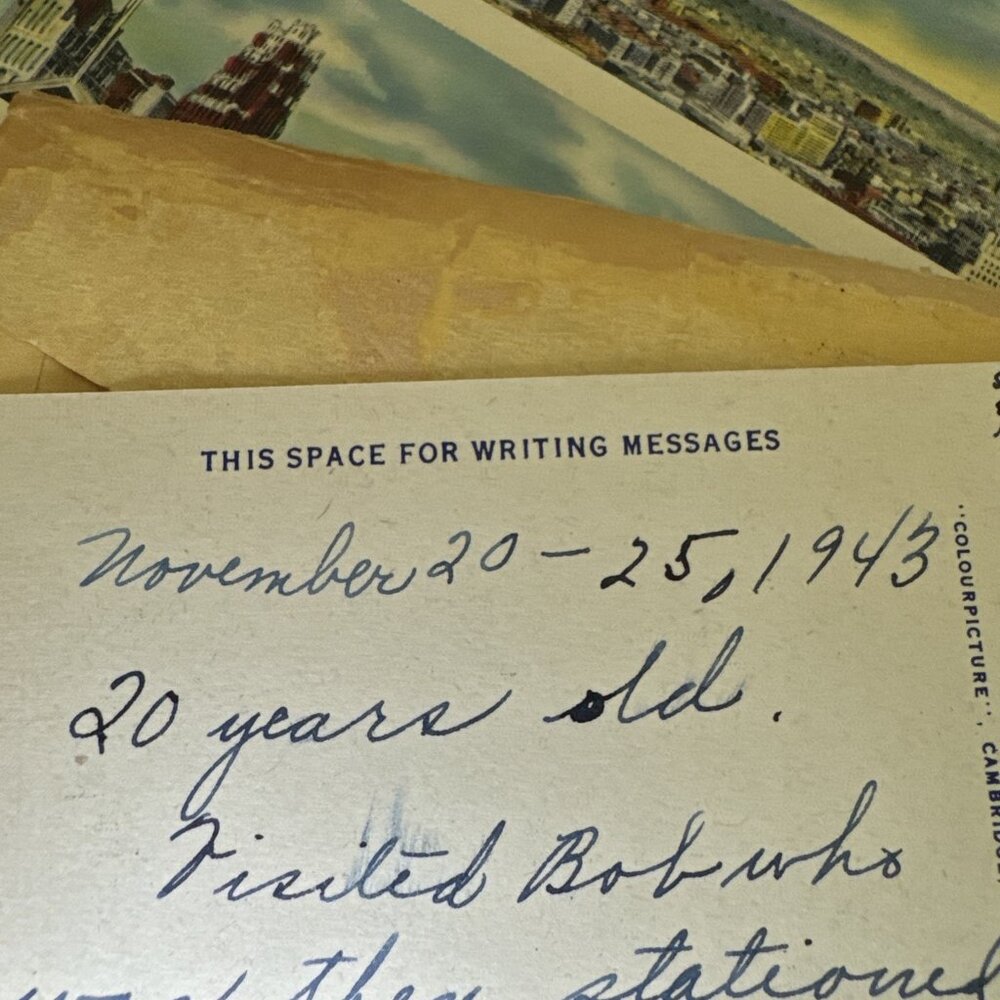 THIS SPACE FOR WRITING MESSAGES
November 20 - 25, 1943
20 years old.
Visited Bob who
was then stationed
"COLOURPICTURE", CAMBRIDGE